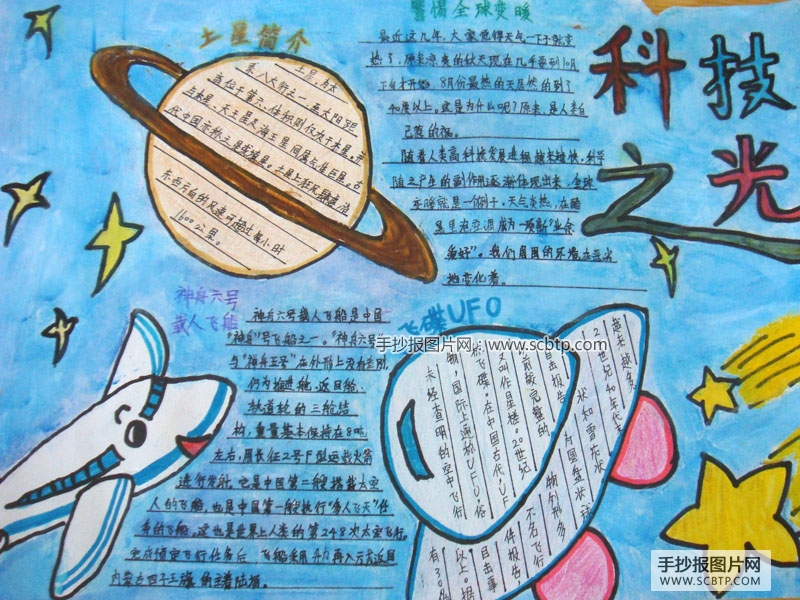 警惕全球变暖
土星简介
科技
之光
最近这几年,大家觉得天气一下子变
热了,原来凉爽的秋天现在几乎要到10月
下旬才开始,8月份最热的天居然的到了
40度以上。这是为什么呢?原来,是人类自
己惹的祸。
随着人类高科技发展进程越来越快,科学
随之产生的副作用逐渐体现出来,全球
变暖就是一个例子。天气炎热,在酷
爱好”。我们周围的环境在
地恶化着。
土星,为太
系八大行星之一,至太阳距
离位于第六、体积则仅次于木星。并
与木星、天王星及海王星同属气体巨星。古
代中国亦称之
东西方向的风速可超过每小时
1600公里。
神舟六号
载人飞船
神舟六号载人飞船是中国
“神舟”号飞船之一。“神舟六号”
与“神舟五号”在外形上没有差别,
仍为推进舱、返回舱、
轨道舱的三舱结
构,重量基本保持在8吨
左右,用长征2号F型运载火箭
进行发射。它是中国第二艘搭载太空
人的飞船,也是中国第一艘执行“多人飞天”任
务的飞船。这也是世界上人类的第248次太空飞行。
内蒙古四子王旗的主着陆场。
飞碟UFO
未经查明的空中飞行
国际上通称UFO,俗
称飞碟。在中国古代,UF
又叫作星槎。20世纪
前较完整的
目击报告
有30
以上。据
目击事
件报告
不名飞行
物外形多
为圆盘状
状和雪茄状
20世纪40年代末
越来越多
手抄报图片网:www.scbtp.com
手抄报图片网
www.SCBTP.com